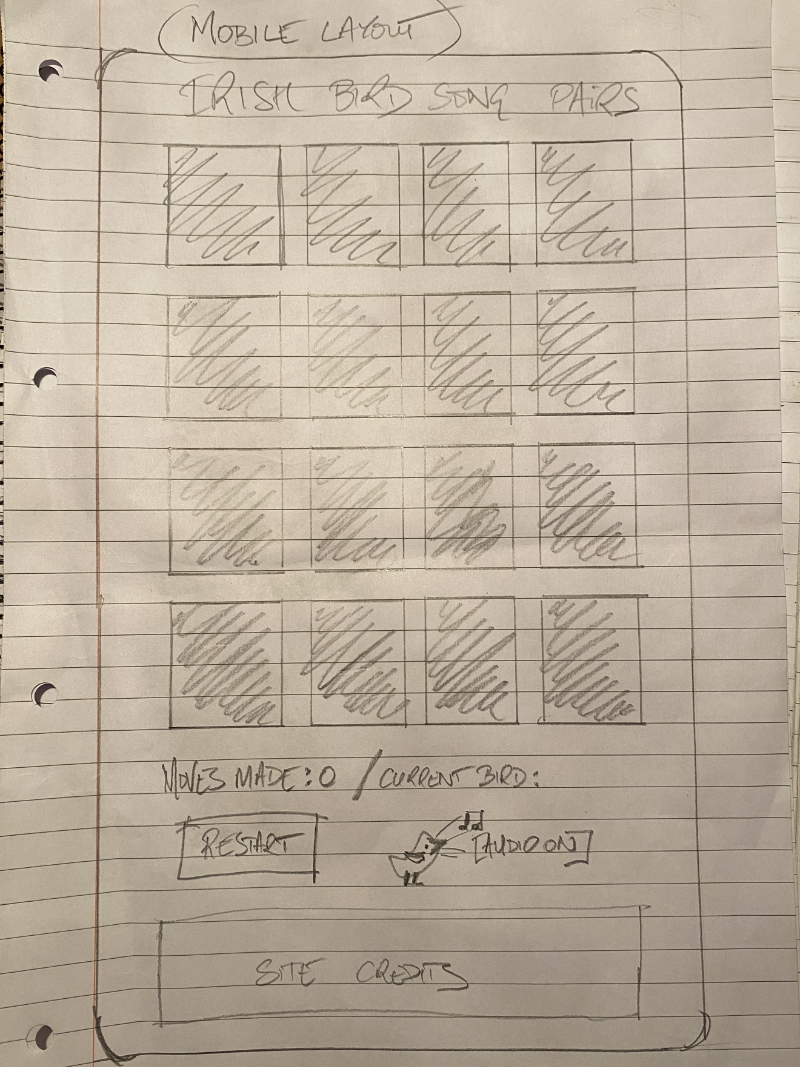 (MOBILE LAYOUT)
IRISH BIRD SONG PAIRS
MOVES MADE: 0 / CURRENT BIRD:
RESTART
[AUDIO ON]
SITE CREDITS